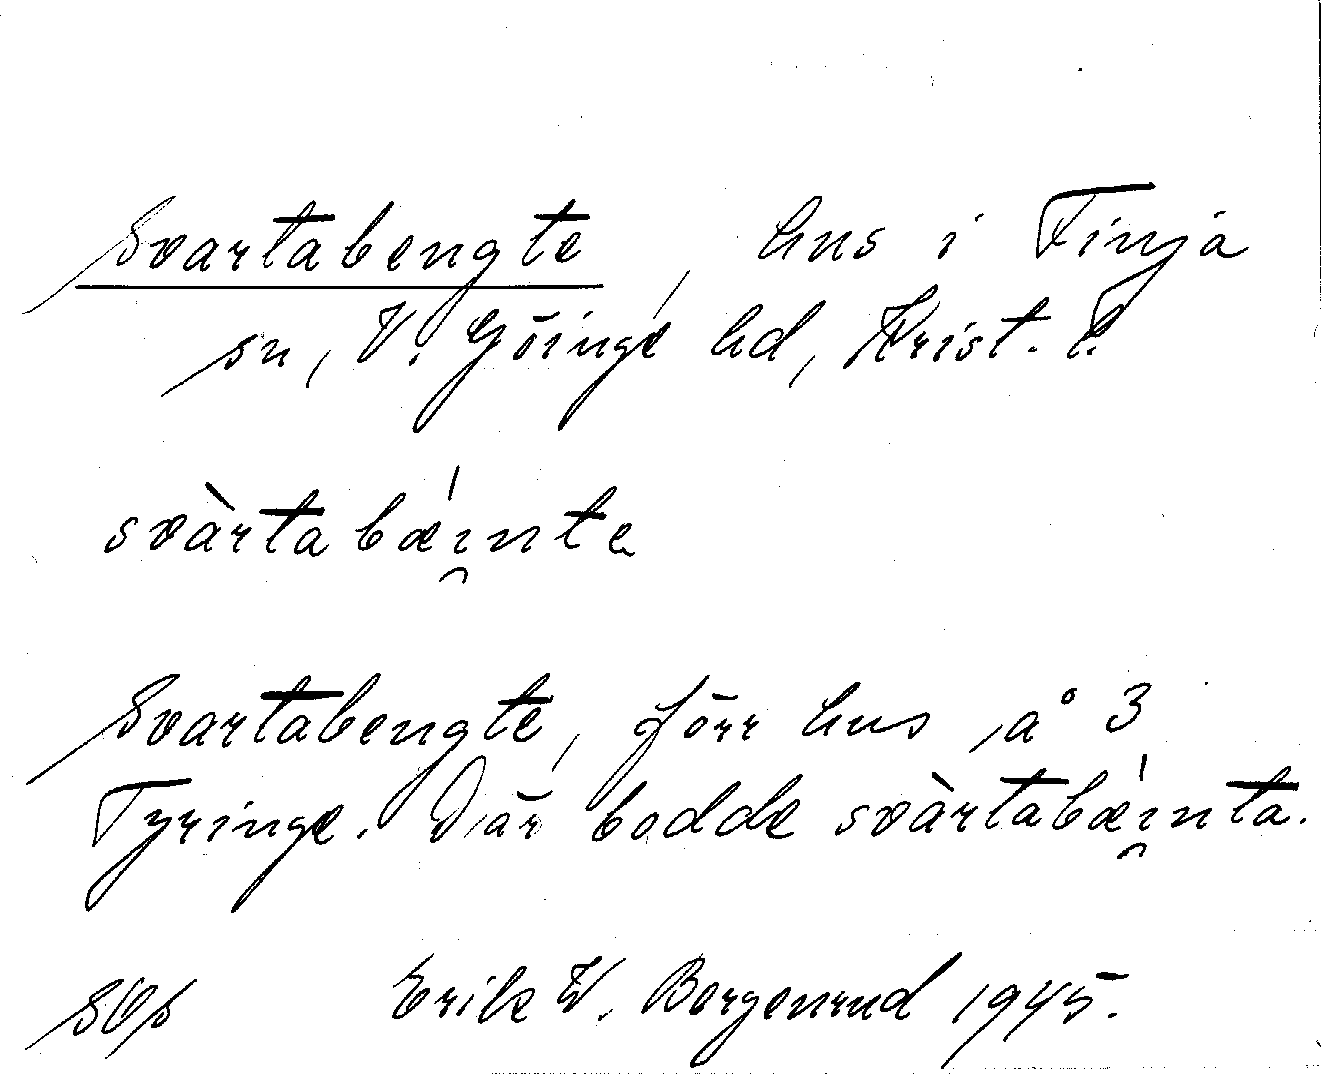 Svartabengte, hus i Finja
sn, V. Göinge hd, Krist. l.
svàrtabǽı̯nte
Svartabengte, förr hus å 3
Tyringe. Där bodde svàrtabǽı̯nta.
SOA Erik W. Bergenrud 1945.